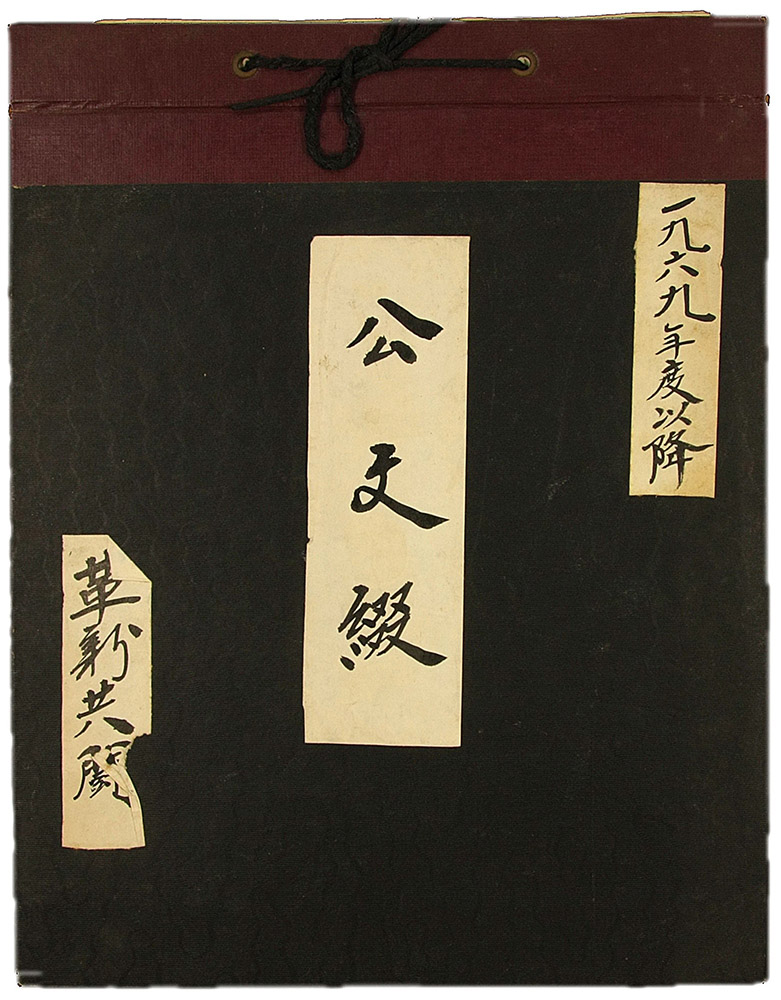 一九六九年度以降
公文綴
革新共闘